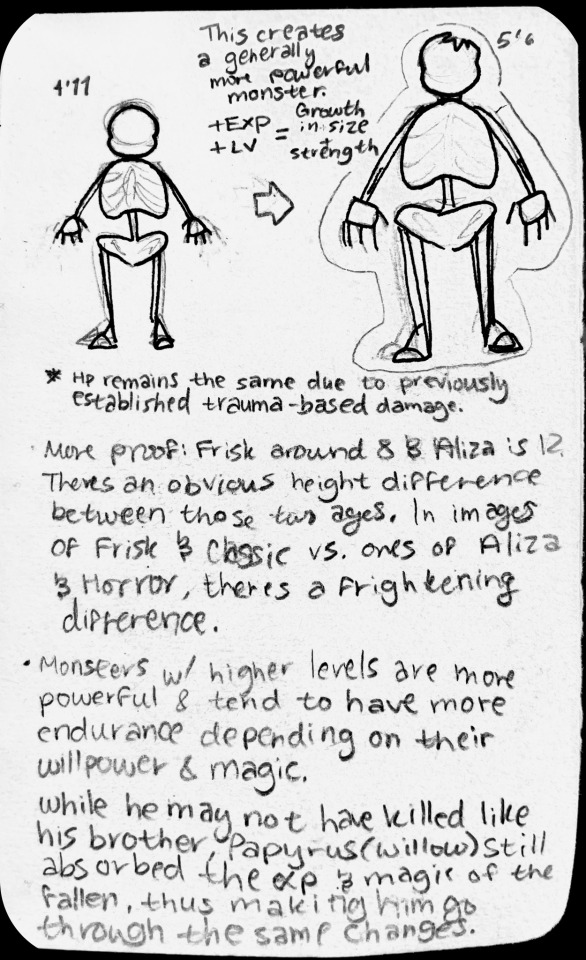 This creates
a generally
more powerful
monster.
+EXP
+LV
=
Growth
in size
+
strength
4'11
5'6
* HP remains the same due to previously
established trauma-based damage.
· More proof: Frisk around 8 & Aliza is 12.
Theres an obvious height difference
between those two ages. In images
of Frisk & Classic vs. ones of Aliza
& Horror, theres a frightening
difference.
· Monsters w/ higher levels are more
powerful & tend to have more
endurance depending on their
willpower & magic.
While he may not have killed like
his brother, Papyrus (Willow) still
absorbed the exp & magic of the
fallen, thus making him go
through the same changes.